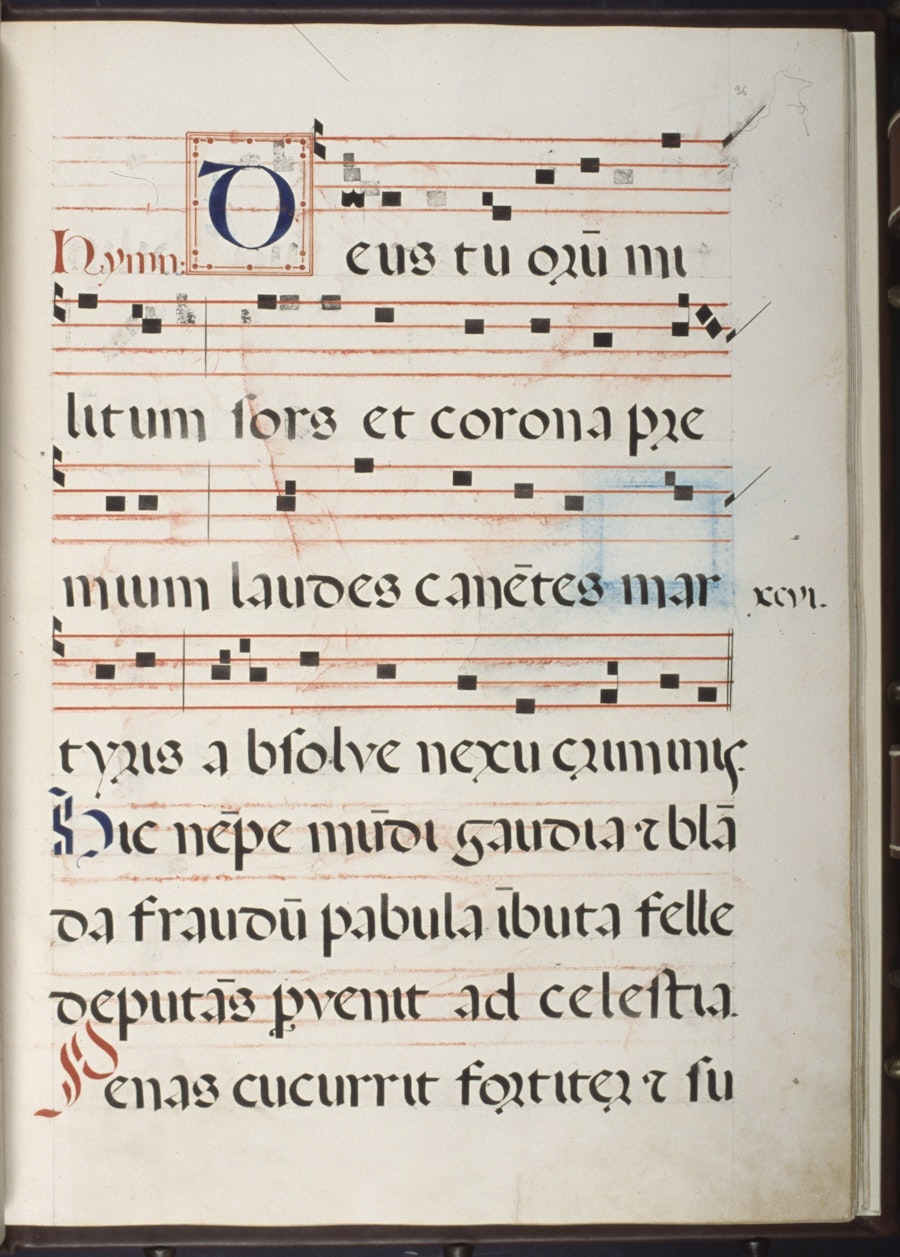 96
Hymn:
Deus tu oꝛū mi
litum ſors et corona pꝛe
mium laudes canētes mar
xcvi.
tyꝛis abſolve nexu cꝛiminis.
Hic nēpe mūdi gaudia ⁊ blā
da fraudū pabula ībuta felle
deputās ꝑvenit ad celeſtia.
Penas cucurrit foꝛtiteꝛ ⁊ ſu